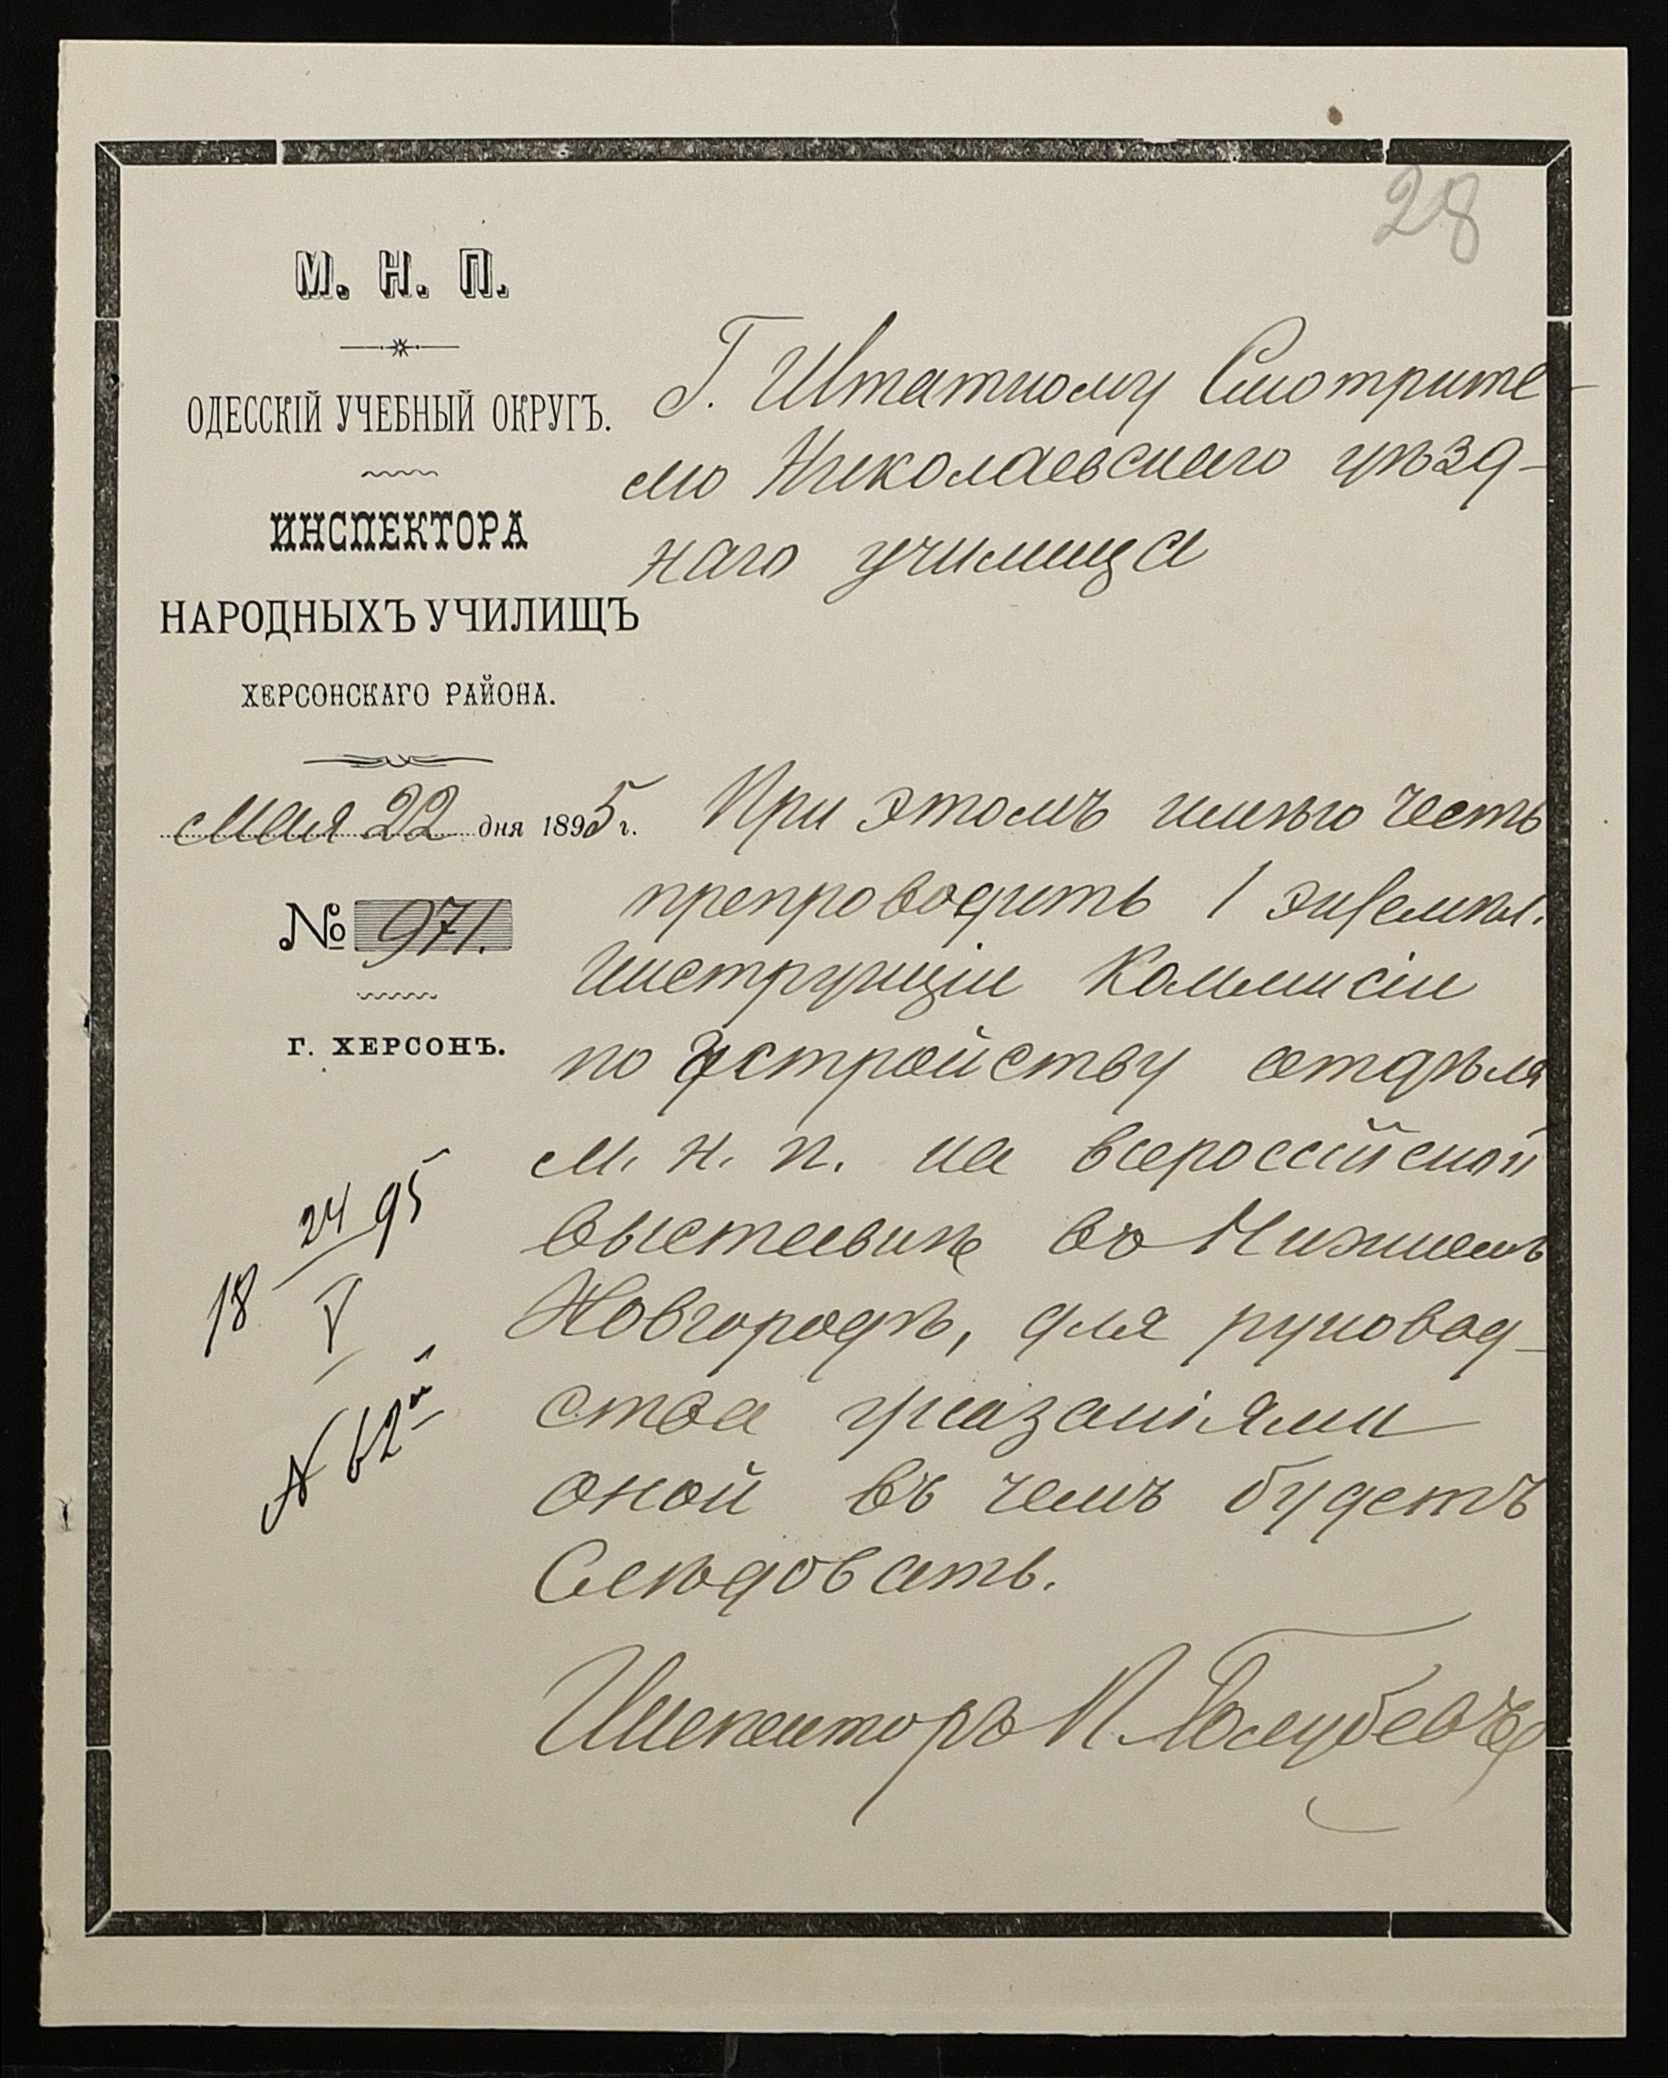 28
М. Н. П.
ОДЕССКІЙ УЧЕБНЫЙ ОКРУГЪ.
ИНСПЕКТОРА
НАРОДНЫХЪ УЧИЛИЩЪ
ХЕРСОНСКАГО РАЙОНА.
Мая 22 дня 1895 г.
№ 971.
Г. ХЕРСОНЪ.
18 24/V 95
N 62
Г. Штатному Смотрите-
лю Николаевскаго уѣзд-
наго училища
При этомъ имѣю честь
препроводить 1 экземпл.
Инструкціи Коммисіи
по устройству отдѣла
М. Н. П. на всероссійской
выставкѣ въ Нижнемъ
Новгородѣ, для руковод-
ства указаніями
оной въ чемъ будетъ
Слѣдовать.
Инспекторъ П. Голубевъ